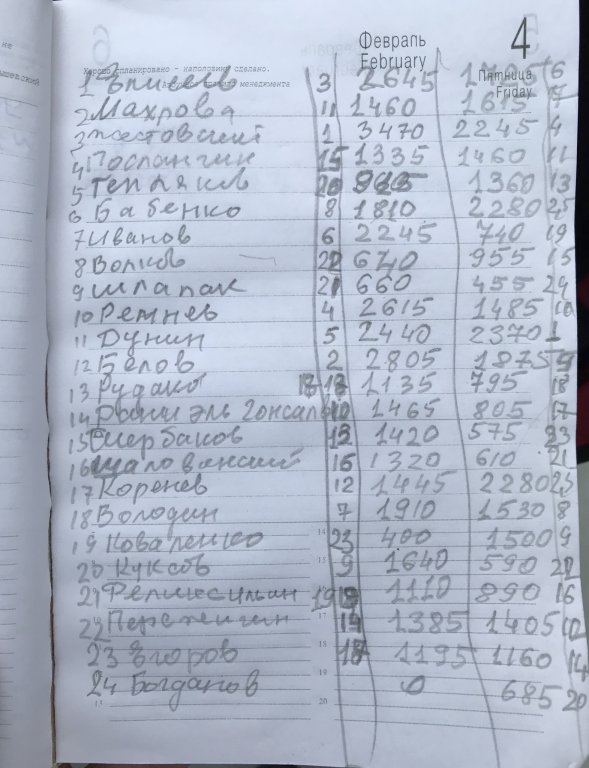 Февраль
February
4
Пятница
Friday
Хорошо спланировано - наполовину сделано.
менеджмента
1 3 2645 6
2 Махрова 11 1460 1615
3 жестовский 1 3470 2245 4
4 Послангин 15 1335 1460 11
5 Тепляков 20 1360 13
6 Бабенко 8 1810 2280
7 Иванов 6 2245 740 19
8 Волков 22 670 955 15
9 шлапак 21 660 455 24
10 Ремнев 4 2615 1485 10
11 Дунин 5 2440 2370 1
12 Белов 2 2805 1875
13 Рудаков 1135 795 18
14 Даниэль Гонсаль 10 1465 805 17
15 Щербаков 1420 575 23
16 Шаловинский 16 1320 610 21
17 Коренев 12 1445 2280
18 Володин 7 1910 1530 8
19 Коваленко 23 400 1500 9
20 Куксов 9 1640 590 22
21 Феликсильян 19 1110 890 16
22 14 1385 1405
23 Егоров 1195 1160 14
24 Богданов 0 685 20